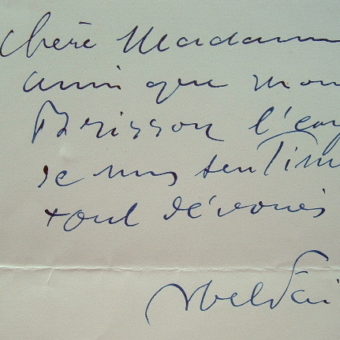 Chère Madame
ainsi que mon
Brisson l'
de mes sentim
tout dévoués